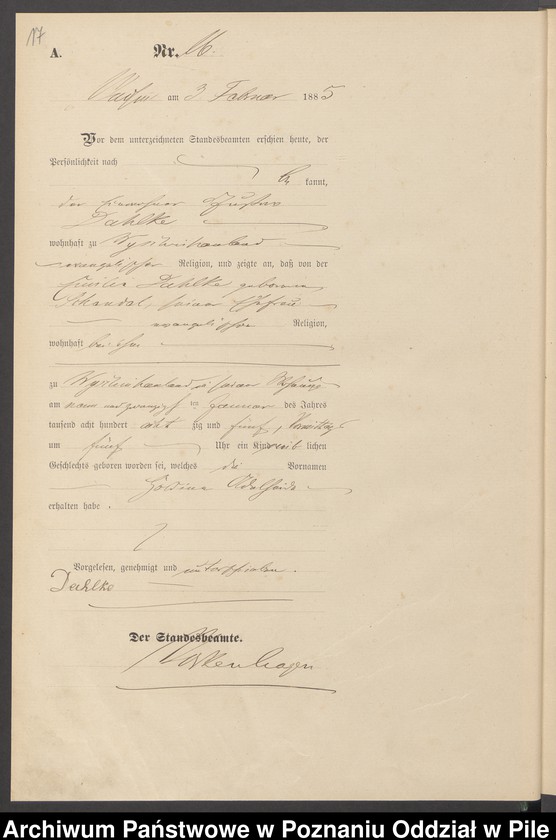 17
A. Nr. 16.
am 3 Februar 1885
Vor dem unterzeichneten Standesbeamten erschien heute, der
Persönlichkeit nach
be kannt,
der Einwohner Gustav
Dahlke
wohnhaft zu
evangelischer Religion, und zeigte an, daß von der
Emilie Dahlke geborenen
seiner Ehefrau
evangelischer Religion,
wohnhaft bei ihm
zu in seiner Behausung
am neun und zwanzigsten Januar des Jahres
tausend acht hundert acht zig und fünf, Vormittags
um fünf Uhr ein Kind weib lichen
Geschlechts geboren worden sei, welches die Vornamen
erhalten habe.
Vorgelesen, genehmigt und unterschrieben.
Dahlke
Der Standesbeamte.
Archiwum Państwowe w Poznaniu Oddział w Pile